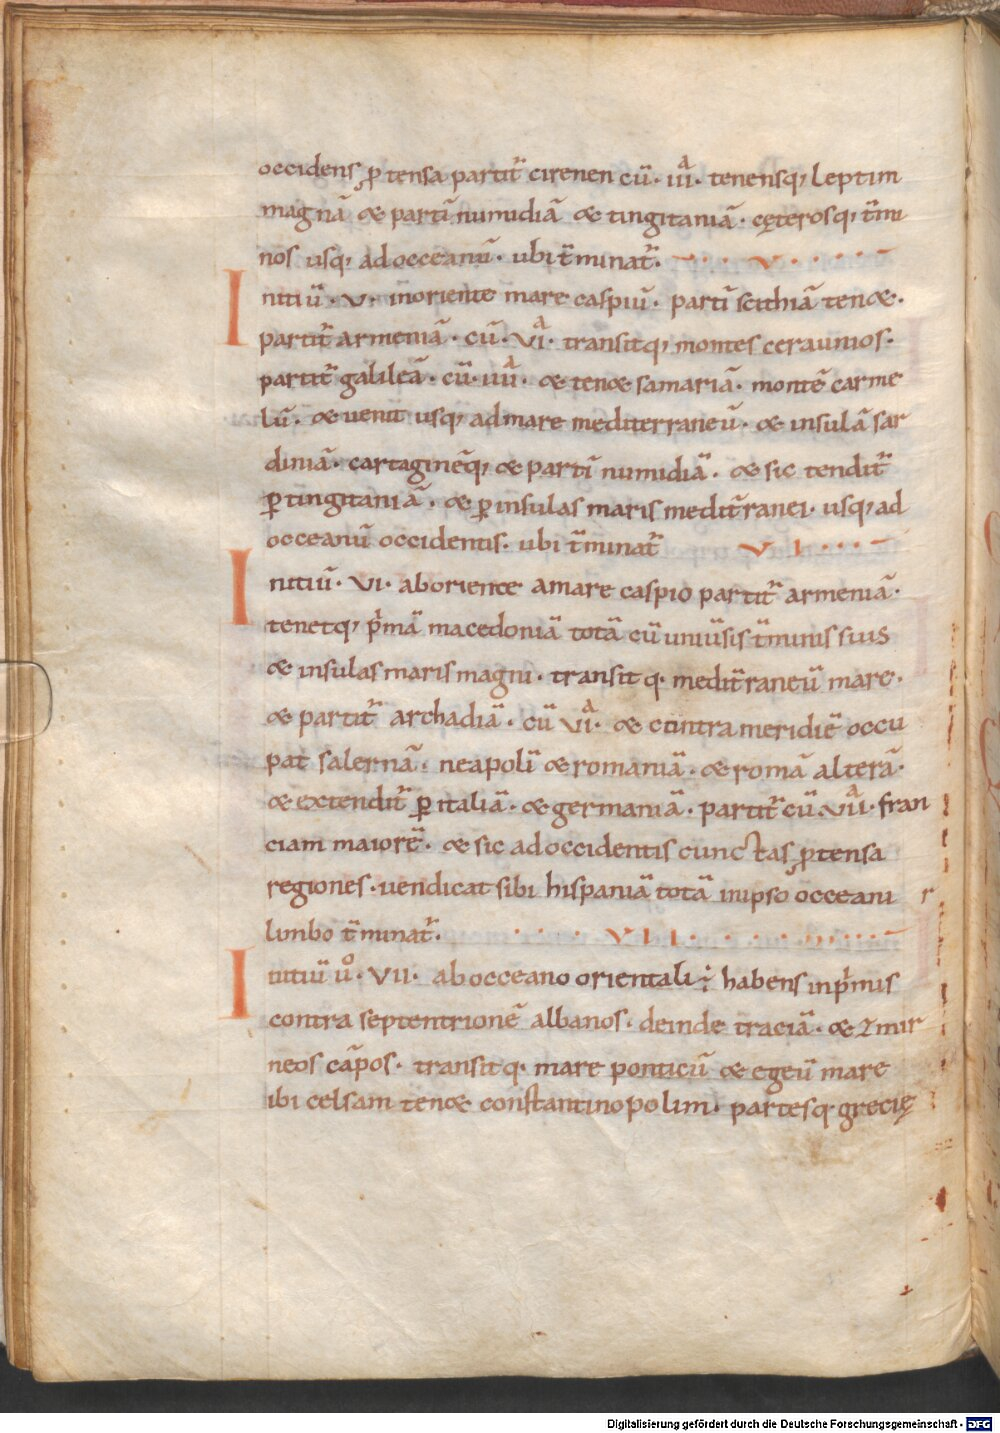 occidens ꝓtensa partit̄ cirenen cū · iiiᷓ · tenensq; leptim
magnā & partī numidiā & tingitaniā · cęterosq; t̄mi
nos usq; ad occeanū · ubi t̄minat̄ · V ·
Initiū · V · in oriente mare caspiū · partī scithiā ten& ·
partit̄ armeniā · cū · VIᷓ · transitq; montes ceraunios ·
partit̄ galileā · cū · iiiiᷓ · & ten& samariā · montē carme
lū · & uenit usq; ad mare mediterraneū · & insulā sar
diniā · cartaginēq; & partī numidiā · & sic tendit̄
ꝑ tingitaniā · & ꝑ insulas maris medit̄ranei · usq; ad
occeanū occidentis · ubi t̄minat̄ VI ·
Initiū · VI · ab oriente a mare caspio partit̄ armeniā ·
tenetq; p̄mā macedoniā totā cū uniūsis t̄minis suis
& insulas maris magni · transitq · medit̄raneū mare ·
& partit̄ archadiā · cū VIᷓ · & contra meridiē occu
pat salernā · neapolī & romaniā · & romā alterā ·
& extendit̄ ꝑ italiā · & germaniā · partit̄ cū VIIᷓ · fran
ciam maiorē · & sic ad occidentis cunctas ꝓtensa
regiones · uendicat sibi hispaniā totā in ipso occeani
limbo t̄minat̄ · VII ·
Initiū uͦ · VII · ab occeano orientali ÷ habens in p̄mis
contra septentrionē albanos · deinde traciā · & zmir
neos cāpos · transitq · mare ponticū & egeū mare
ibi celsam ten& constantinopolim · partesq grecię
Digitalisierung gefördert durch die Deutsche Forschungsgemeinschaft - DFG